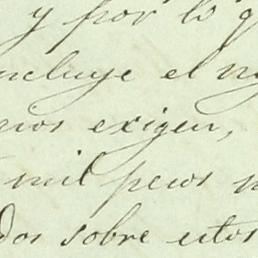 y por lo q
ncluye el n
eros exigen,
mil pesos n
dos sobre estos